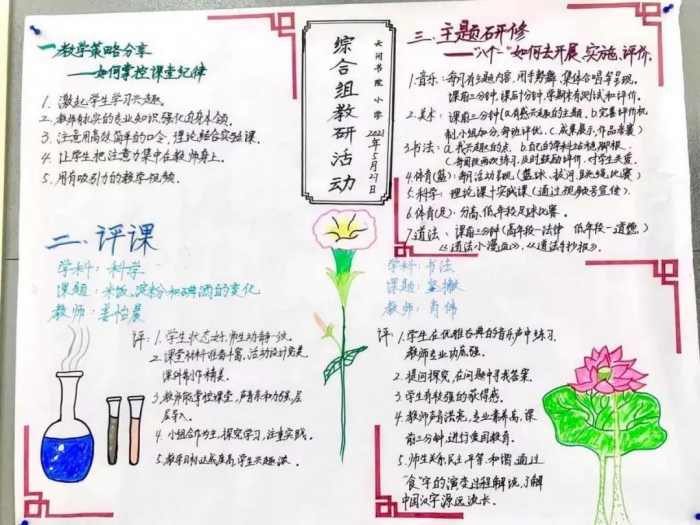 一、教学策略分享
——如何掌控课堂纪律
1. 激起学生学习兴趣。
2. 教师有扎实的专业知识,强化自身本领。
3. 注意用高效简单的口令,理论结合实验课。
4. 让学生把注意力集中在教师身上。
5. 用有吸引力的教学视频。
天问书院小学
综合组教研活动
2021年5月27日
三、主题研修
——"八个一"如何去开展、实施、评价.
1.音乐:每月有主题内容,用手势舞、集体合唱等呈现。
课前三分钟,课后1分钟,学期末有测试和评价。
2.美术:课前三分钟(以有感兴趣的主题、b.完善评价机
制,小组加分,奖班评优。(c.成果展示,作品卖赛)
3.书法:a.找兴趣的点 b.自己的学科站稳脚根.
c.每周放两次练习,及时鼓励评价,对学生关爱.
4.体育(篮):每月活动呈现(篮球、拔河、跳绳比赛)
5.科学:理论课+实践课(通过视频号宣传).
6.体育(足):分高、低年段足球比赛.
7.道法:课前三分钟(高年段—法律 低年段—道德.)
《道法小漫画》、《道法手抄报》.
二、评课
学科:科学
课题:米饭、淀粉和碘酒的变化
教师:姜怡晨
评:1.学生状态好,师生动静一致.
2.课堂材料准备丰富,活动设计完美,
课件制作精美.
3.教师能掌控课堂,声音亲和力强,层
层导入.
4.小组合作为主,探究学习,注重实践。
5.教学目标达成度高,学生兴趣浓.
学科:书法
课题:竖撇
教师:肖伟
评:
1.学生在优雅古典的音乐声中练习.
教师专业功底强.
2.提问探究,在问题中寻找答案.
3.学生有较强的获得感.
4.教师声音洪亮,专业素养高,课
前三分钟,进行爱国教育.
5.师生关系民主、平等、和谐,通过
"食"字的演变过程解说,了解
中国汉字源远流长.